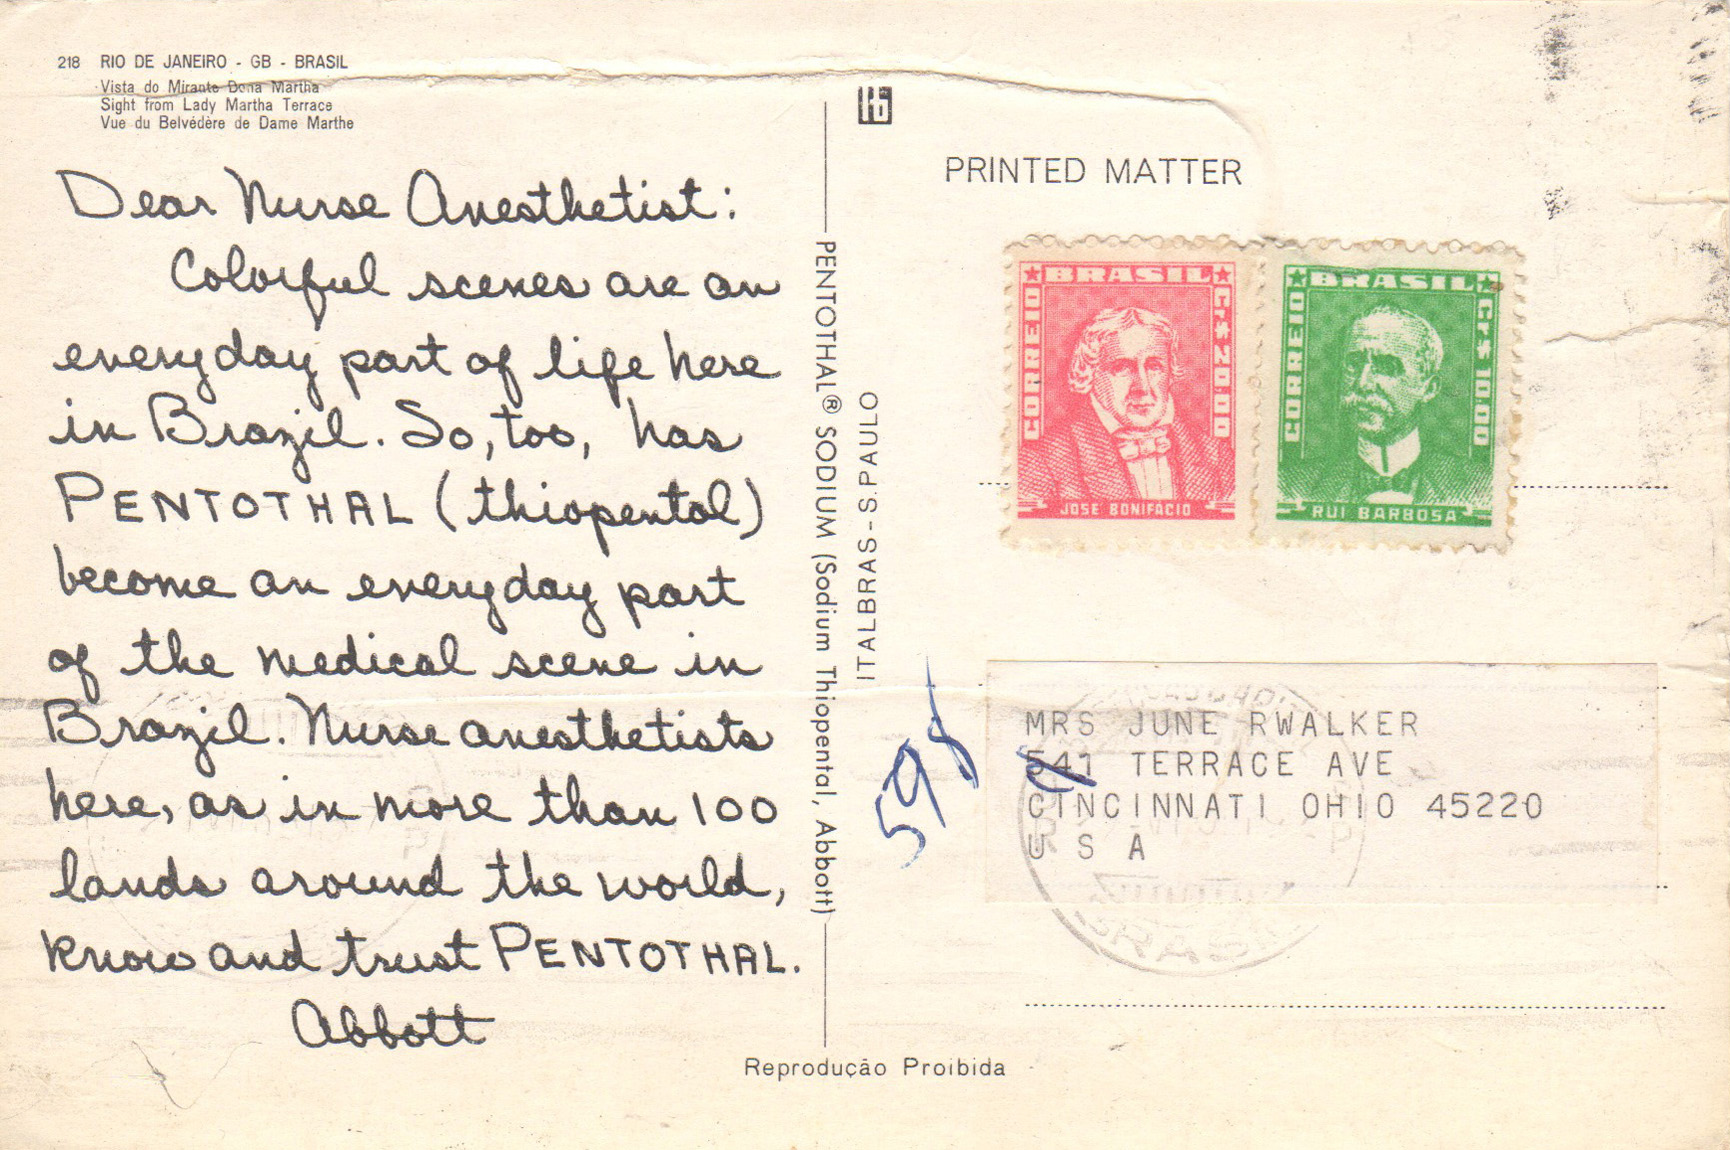 218 RIO DE JANEIRO - GB - BRASIL
Vista do Mirante Dona Martha
Sight from Lady Martha Terrace
Vue du Belvédère de Dame Marthe
Dear Nurse Anesthetist:
Colorful scenes are an
everyday part of life here
in Brazil. So, too, has
PENTOTHAL (thiopental)
become an everyday part
of the medical scene in
Brazil. Nurse anesthetists
here, as in more than 100
lands around the world,
know and trust PENTOTHAL.
Abbott
PENTOTHAL® SODIUM (Sodium Thiopental, Abbott)
ITALBRAS - S. PAULO
PRINTED MATTER
BRASIL
CORREIO
Cr$ 20,00
JOSÉ BONIFACIO
BRASIL
CORREIO
Cr$ 10,00
RUI BARBOSA
595
MRS JUNE RWALKER
541 TERRACE AVE
CINCINNATI OHIO 45220
U S A
BRASIL
Reprodução Proibida